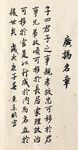 廣揚名章
子曰君子之事親孝故忠可移於君
事兄弟故順可移於長居家理故治
可移於官是以行成於內而名立
於後世矣